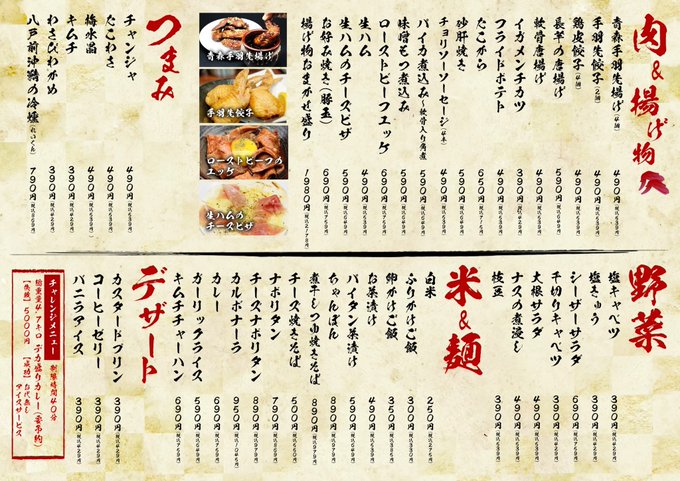 肉&揚げ物
青森手羽先揚げ(4個) 490円(税込539円)
手羽先餃子(2個) 490円(税込539円)
鶏皮餃子(4個) 490円(税込539円)
長芋の唐揚げ 490円(税込539円)
軟骨唐揚げ 590円
イカメンチカツ 390円
フライドポテト 490円(税込539円)
たこから 650円(税込715円)
砂肝焼き 490円(税込539円)
チョリソーソーセージ(4本) 490円
バイカ煮込み〜軟骨入り角煮 590円
味噌もつ煮込み 590円
ローストビーフユッケ 690円
生ハム 490円
生ハムのチーズピザ 590円
お好み焼き(豚玉) 690円
揚げ物おまかせ盛り 1980円(税込2178円)
青森手羽先揚げ
手羽先餃子
ローストビーフのユッケ
生ハムのチーズピザ
つまみ
チャンジャ 490円(税込539円)
たこわさ 490円(税込539円)
梅水晶 490円(税込539円)
キムチ
わさびわかめ
八戸前沖鯖の冷燻(れいくん) 790円(税込869円)
野菜
塩キャベツ 390円
塩きゅう 390円
シーザーサラダ 690円
千切りキャベツ 390円
大根サラダ
ナスの煮浸し 490円
枝豆 390円
米&麺
白米 250円(税込275円)
ふりかけご飯 300円(税込330円)
卵かけご飯
お茶漬け
パイタン茶漬け
ちゃんぽん 890円
煮干しつゆ焼きそば 890円(税込979円)
チーズ焼きそば
ナポリタン 790円
チーズナポリタン 890円
カルボナーラ 950円(税込1045円)
カレー 690円
ガーリックライス
キムチチャーハン 690円
デザート
カスタードプリン 390円(税込429円)
コーヒーゼリー 390円(税込429円)
バニラアイス 390円(税込429円)
チャレンジメニュー 制限時間40分
総重量4.7キロ デカ盛りカレー(要予約)
【失敗】5000円 【成功】お代無し
アイスサービス